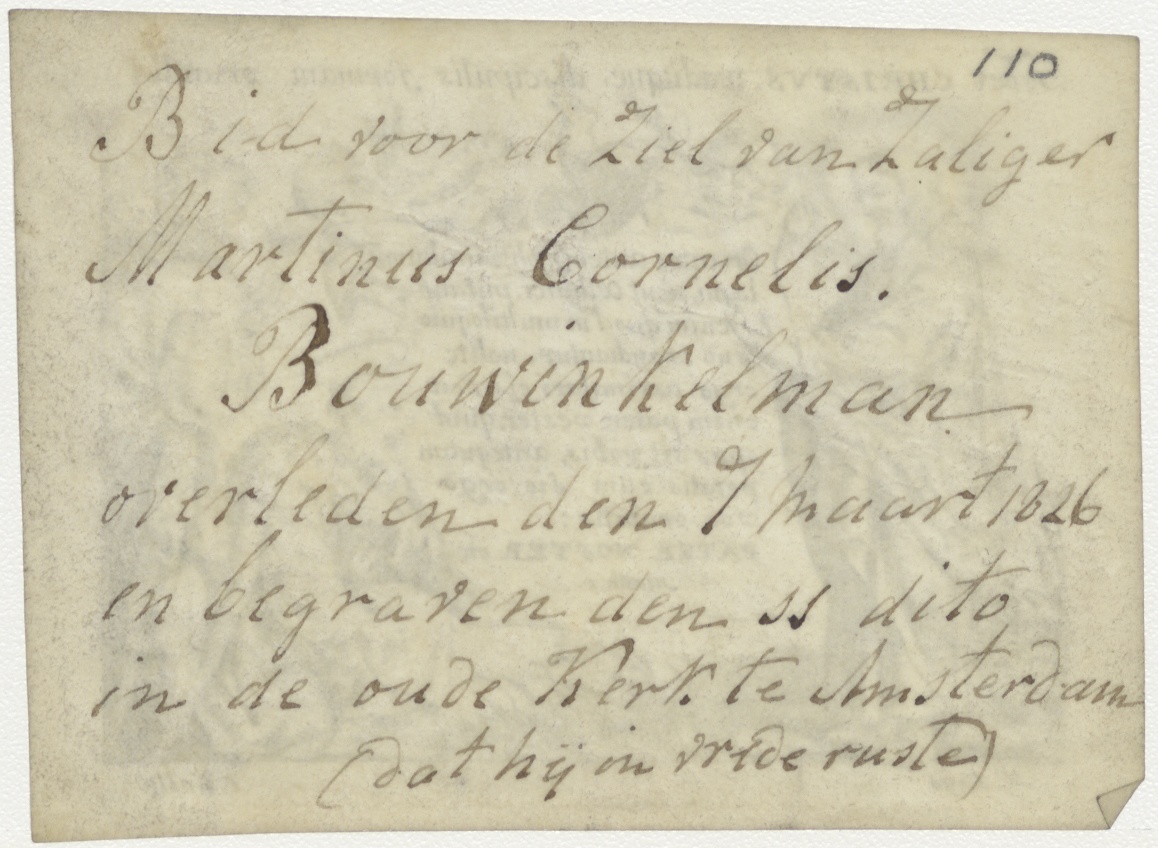 110
Bid voor de Ziel van Zaliger
Martinus Cornelis.
Bouwinkelman
overleden den 7 maart 1826
en begraven den 11 dito
in de oude Kerk te Amsterdam
(dat hij in vrede ruste)